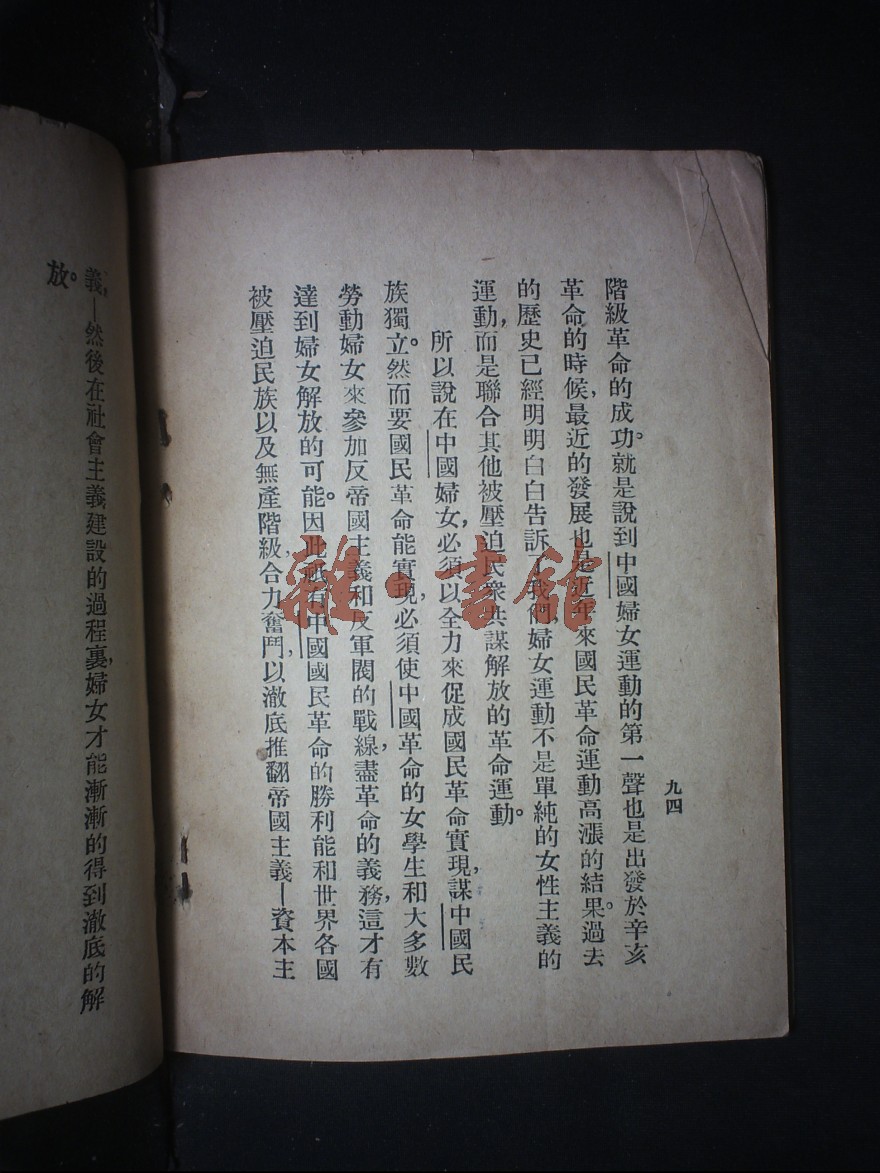 九四
階級革命的成功。就是說到中國婦女運動的第一聲也是出發於辛亥
革命的時候，最近的發展也是近年來國民革命運動高漲的結果。過去
的歷史已經明明白白告訴了我們，婦女運動不是單純的女性主義的
運動，而是聯合其他被壓迫民衆共謀解放的革命運動。
所以說在中國婦女，必須以全力來促成國民革命實現，謀中國民
族獨立。然而要國民革命能實現，必須使中國革命的女學生和大多數
勞動婦女來參加反帝國主義和反軍閥的戰線，盡革命的義務，這才有
達到婦女解放的可能。因此祇有中國國民革命的勝利能和世界各國
被壓迫民族以及無產階級，合力奮鬥，以澈底推翻帝國主義—資本主
義，—然後在社會主義建設的過程裏，婦女才能漸漸的得到澈底的解
放。
雜·書館